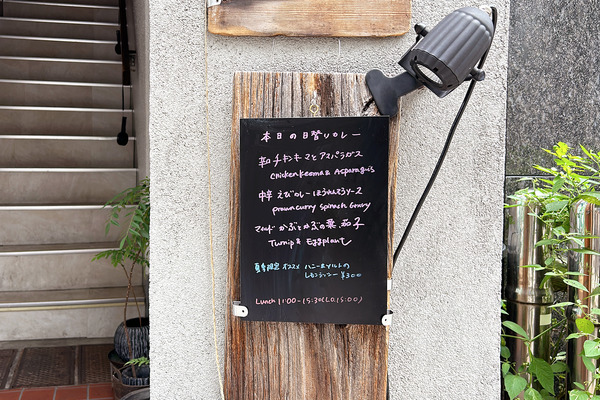 本日の日替りカレー
チキンキーマとアスパラガス
Chicken keema & Asparagus
中辛 えびカレー ほうれんそうソース
prawn curry spinach Gravy
マイルド かぶとかぶの葉、茄子
Turnip & Eggplant
夏季限定 オススメ ハニー&ソルトの
レモンラッシー ¥300
Lunch 11:00-15:30(L.O.15:00)